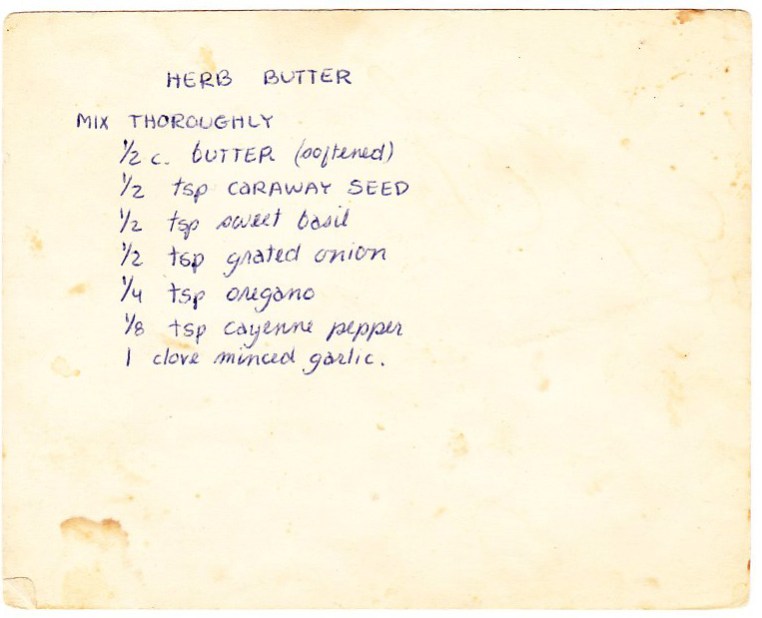 HERB BUTTER
MIX THOROUGHLY
1/2 c. BUTTER (softened)
1/2 tsp CARAWAY SEED
1/2 tsp sweet basil
1/2 tsp grated onion
1/4 tsp oregano
1/8 tsp cayenne pepper
1 clove minced garlic.